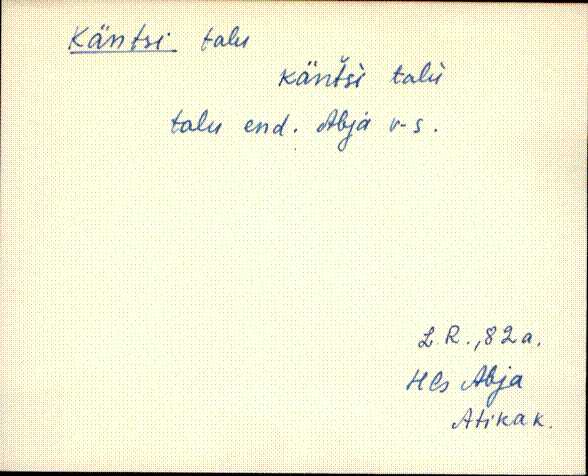 Käntsi talu
käntši talù
talu end. Abja v-s.
L. R., 82a.
Hls Abja
Atika k.